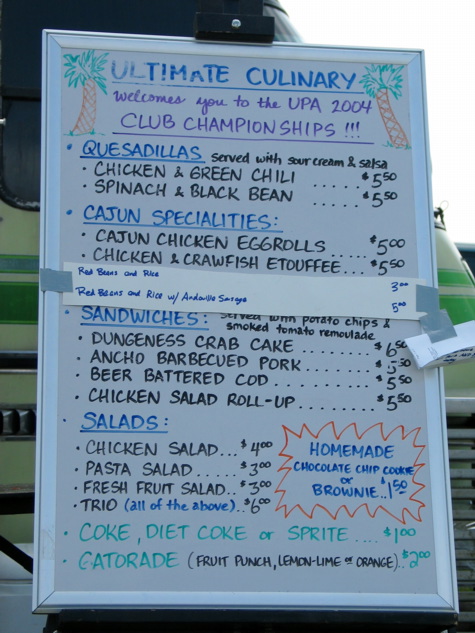 ULTIMATE CULINARY
welcomes you to the UPA 2004
CLUB CHAMPIONSHIPS !!!
• QUESADILLAS served with sour cream & salsa
• CHICKEN & GREEN CHILI ...... $5.50
• SPINACH & BLACK BEAN ...... $5.50
• CAJUN SPECIALITIES:
• CAJUN CHICKEN EGGROLLS ..... $5.00
• CHICKEN & CRAWFISH ETOUFFEE... $5.50
Red Beans and Rice 3.00
Red Beans and Rice w/ Andouille Sausage 5.00
SANDWICHES: served with potato chips &
smoked tomato remoulade
• DUNGENESS CRAB CAKE ........ $6.50
• ANCHO BARBECUED PORK ..... $5.50
• BEER BATTERED COD ........ $5.50
• CHICKEN SALAD ROLL-UP ....... $5.50
• SALADS:
• CHICKEN SALAD... $4.00
• PASTA SALAD .... $3.00
• FRESH FRUIT SALAD.. $3.00
• TRIO (all of the above).. $6.00
HOMEMADE
CHOCOLATE CHIP COOKIE
or
BROWNIE.. $1.50
• COKE, DIET COKE or SPRITE .... $1.00
• GATORADE (FRUIT PUNCH, LEMON-LIME or ORANGE).. $2.00